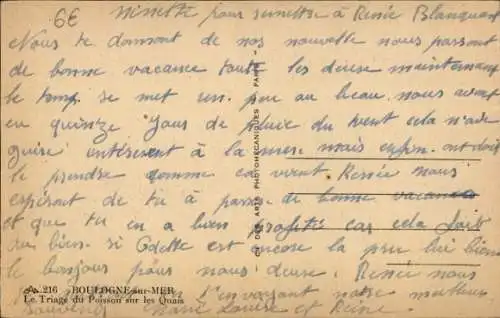 6E
Ninette pour remettre à Renée Blanquart
Nous te donnont de nos nouvelle nous passont
de bonne vacance toute les deuse maintenant
le temp se met un peu au beau nous avont
eu quintze Jours de pluie du vent cela n'est
guire intéresent à la mer mais enfin ont doit
le prendre comme ca vient Renée nous
espéront de tu à passer de bonne vacance
et que tu en a bien profité car cela fait
du bien si Odette est encose la peu lui bien
le bonjour pour nous deuse. Renée nous
t'envoyant notre meilleur
souvenir Marie Louise et Reine.
216 BOULOGNE-sur-MER
Le Triage du Poisson sur les Quais
CIE DES ARTS PHOTOMECANIQUES PARIS